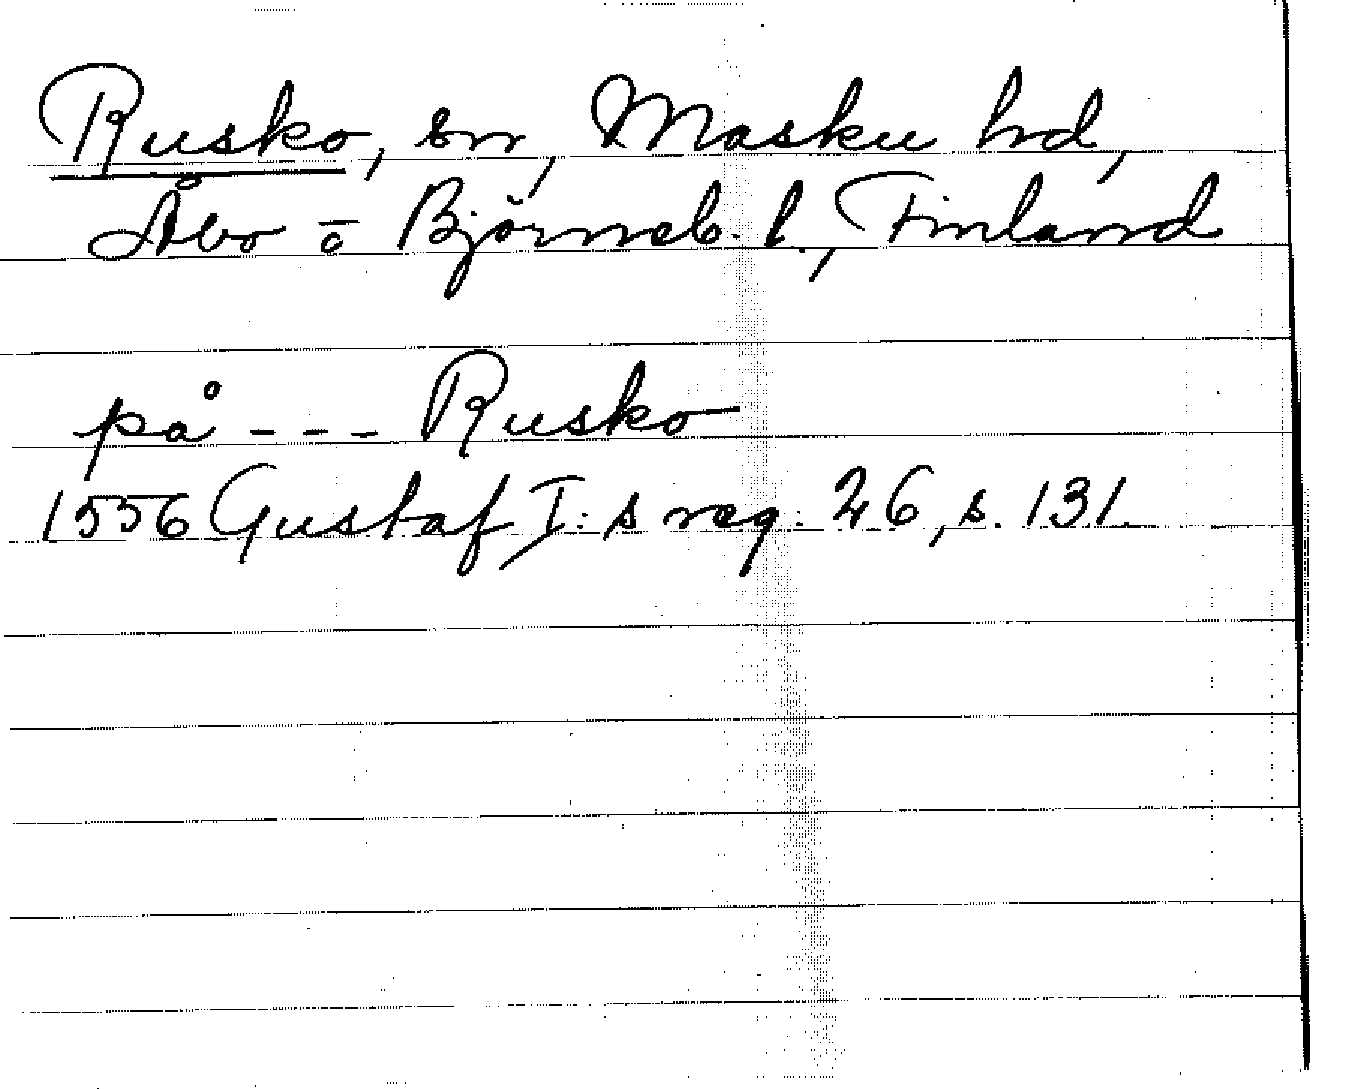 Rusko, sn, Masku hd,
Åbo o Björneb. l., Finland
på --- Rusko
1556 Gustaf I:s reg. 26, s. 131.